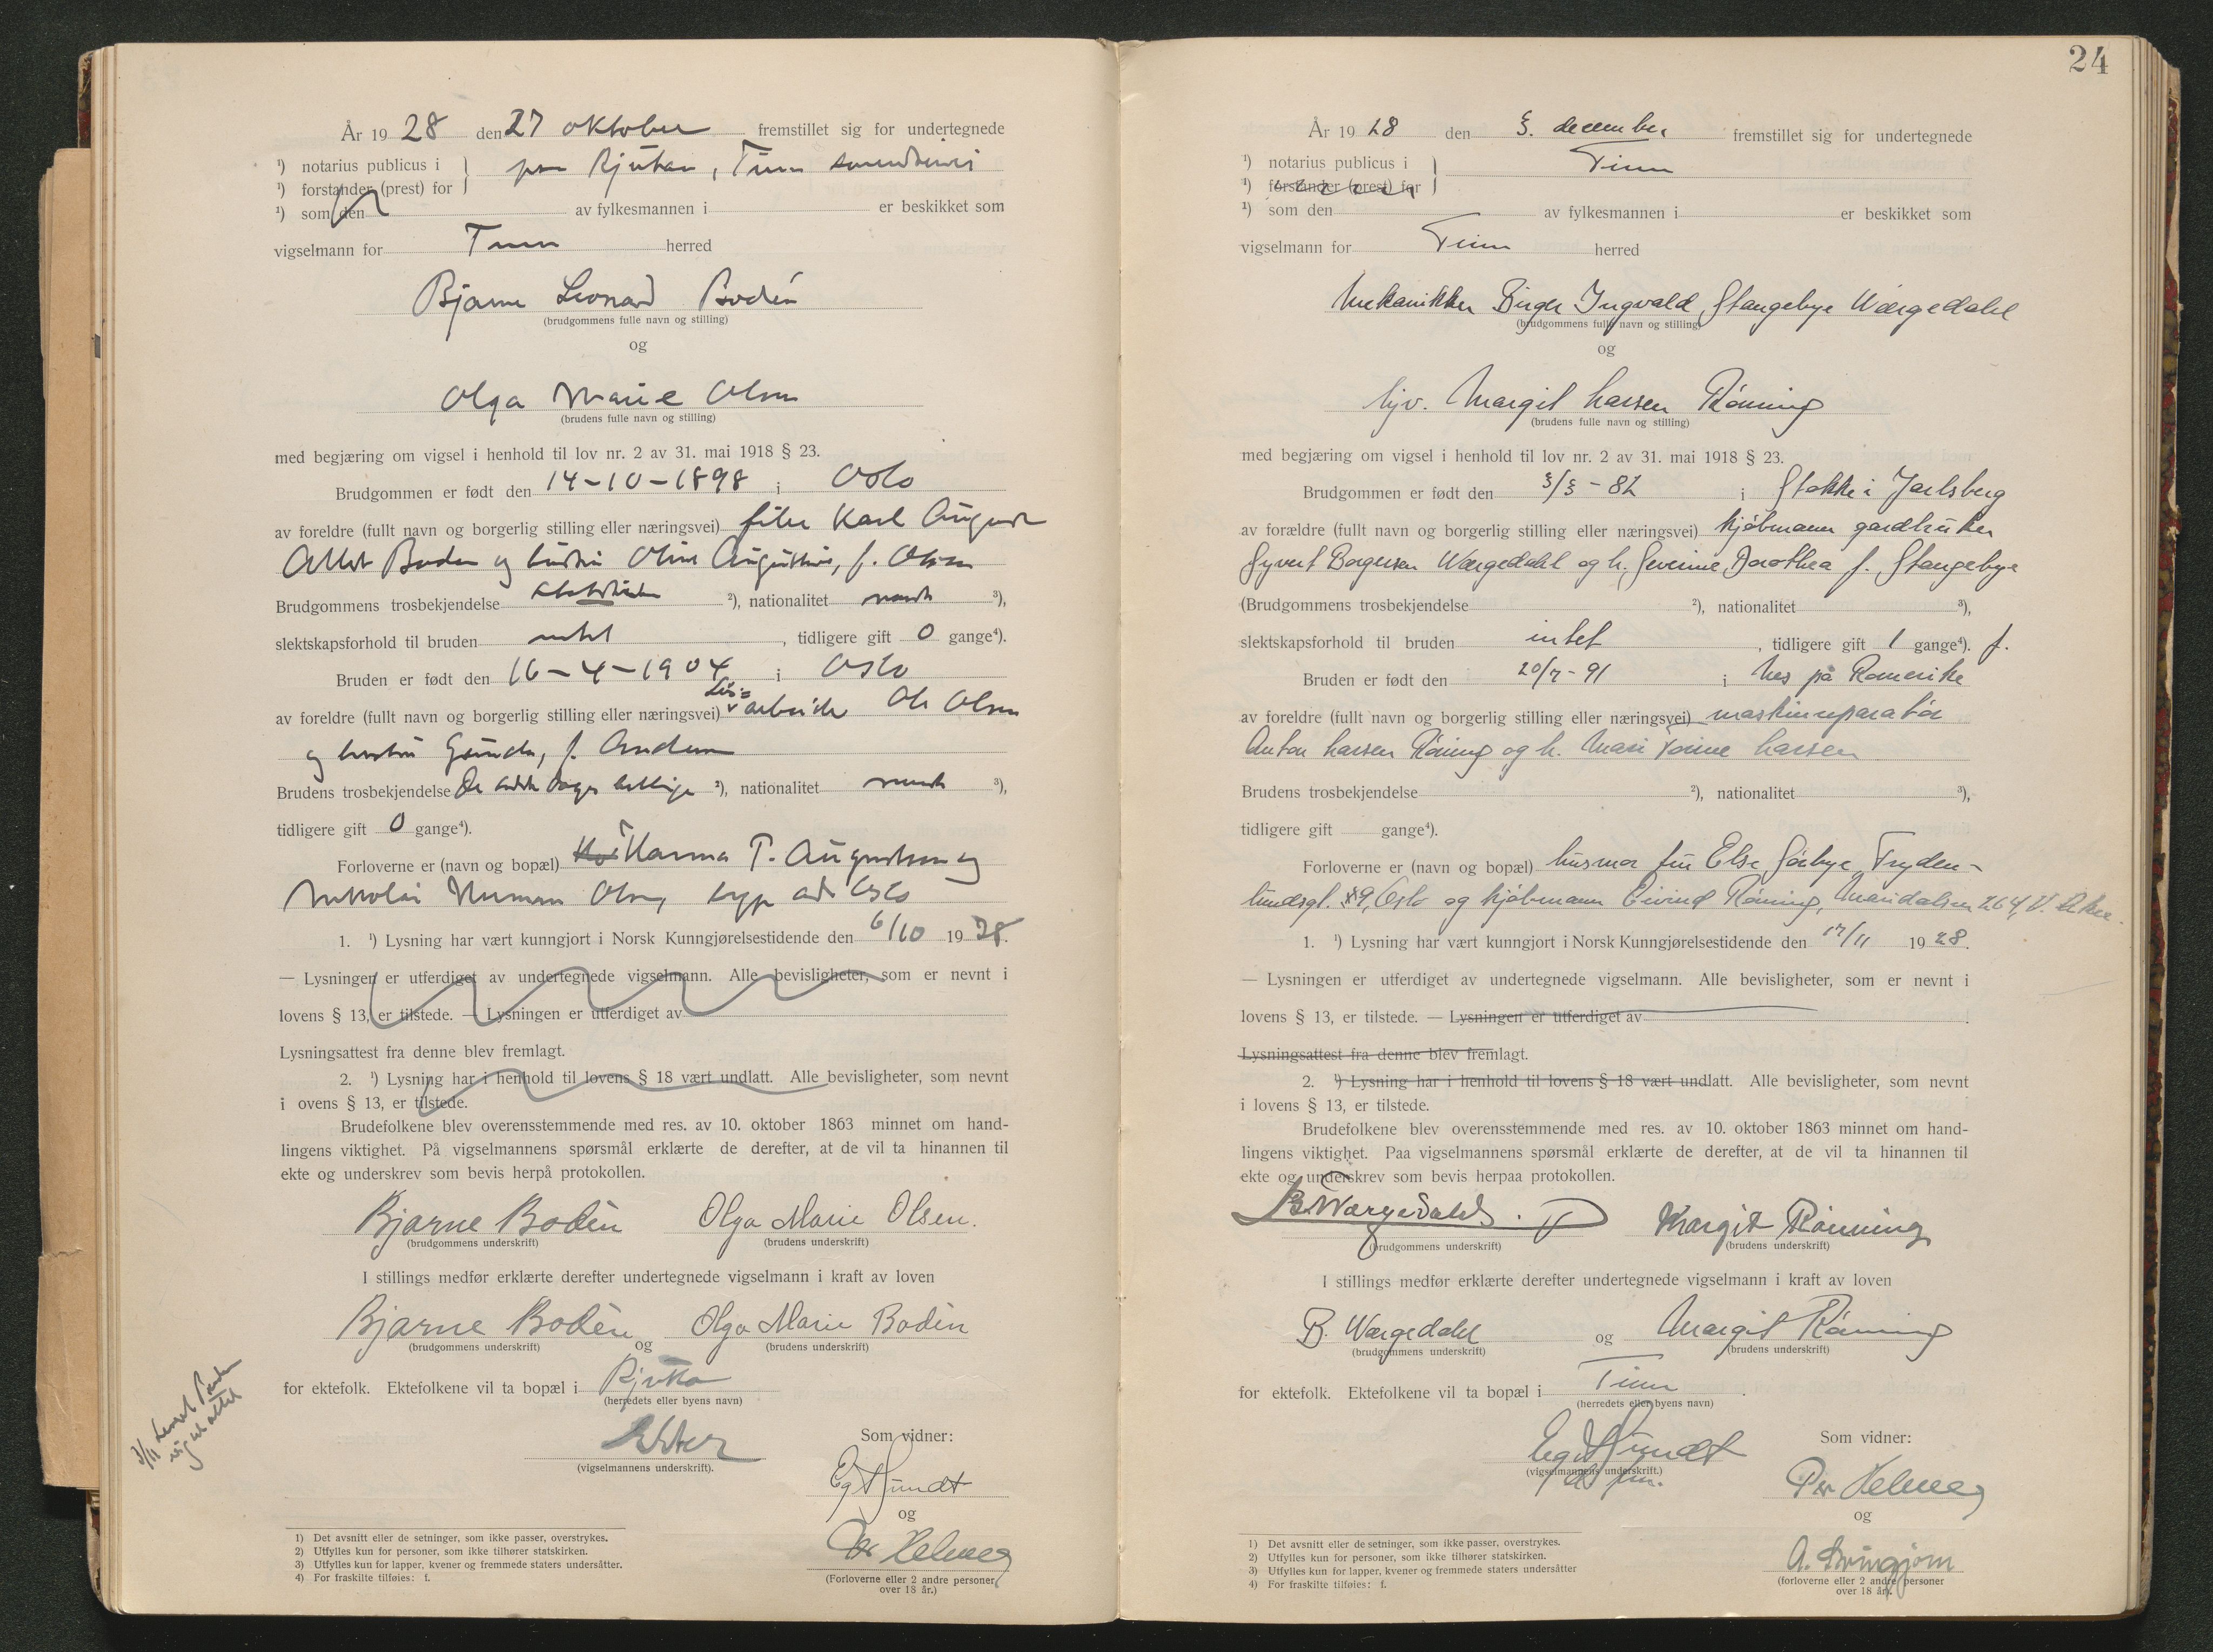 År 19 28 den 27 oktober fremstillet sig for undertegnede
¹) notarius publicus i
¹) forstander (prest) for
Rjukan, Tinn
¹) som den av fylkesmannen i er beskikket som
vigselmann for Tinn herred
Bjarne Leonard Bodén
(brudgommens fulle navn og stilling)
og
Olga Marie Olsen
(brudens fulle navn og stilling)
med begjæring om vigsel i henhold til lov nr. 2 av 31. mai 1918 § 23.
Brudgommen er født den 14-10-1898 i Oslo
av foreldre (fullt navn og borgerlig stilling eller næringsvei) filer Karl August
Albert Boden og hustru Oline Augustine, f. Olsen
Brudgommens trosbekjendelse ²), nationalitet norsk ³),
slektskapsforhold til bruden intet, tidligere gift 0 gange⁴).
Bruden er født den 16-4-1904 i Oslo
av foreldre (fullt navn og borgerlig stilling eller næringsvei) arbeider Ole Olsen
og hustru Gunda, f. Andersen
Brudens trosbekjendelse De siste dages hellige ²), nationalitet norsk ³),
tidligere gift 0 gange⁴).
Forloverne er (navn og bopæl) Hanna T. Augustsen og
Nikolai Herman Olsen, begge av Oslo
1. ¹) Lysning har vært kunngjort i Norsk Kunngjørelsestidende den 6/10 19 28.
— Lysningen er utferdiget av undertegnede vigselmann. Alle bevisligheter, som er nevnt i
lovens § 13, er tilstede. — Lysningen er utferdiget av
Lysningsattest fra denne blev fremlagt.
2. ¹) Lysning har i henhold til lovens § 18 vært undlatt. Alle bevisligheter, som nevnt
i ovens § 13, er tilstede.
Brudefolkene blev overensstemmende med res. av 10. oktober 1863 minnet om hand-
lingens viktighet. På vigselmannens spørsmål erklærte de derefter, at de vil ta hinannen til
ekte og underskrev som bevis herpå protokollen.
Bjarne Bodén Olga Marie Olsen.
(brudgommens underskrift) (brudens underskrift)
I stillings medfør erklærte derefter undertegnede vigselmann i kraft av loven
Bjarne Bodén og Olga Marie Bodén
(brudgommens underskrift) (brudens underskrift)
for ektefolk. Ektefolkene vil ta bopæl i Rjukan
(herredets eller byens navn)
3/11 vigselattest
(vigselmannens underskrift).
Som vidner:
Eg Sundt
og
Per Helmer
(Forloverne eller 2 andre personer
over 18 år.)
1) Det avsnitt eller de setninger, som ikke passer, overstrykes.
2) Utfylles kun for personer, som ikke tilhører statskirken.
3) Utfylles kun for lapper, kvener og fremmede staters undersåtter.
4) For fraskilte tilføies: f.
24
År 19 28 den 3. december fremstillet sig for undertegnede
¹) notarius publicus i
¹) forstander (prest) for
Tinn
¹) som den av fylkesmannen i er beskikket som
vigselmann for Tinn herred
Mekanikker Birger Ingvald Stangebye Wærgedahl
(brudgommens fulle navn og stilling)
og
hjv. Margit Larsen Rønning
(brudens fulle navn og stilling)
med begjæring om vigsel i henhold til lov nr. 2 av 31. mai 1918 § 23.
Brudgommen er født den 3/3 - 82 i Stokke i Jarlsberg
av forældre (fullt navn og borgerlig stilling eller næringsvei) kjøbmann gardbruker
Syvert Borgersen Wærgedahl og h. Severine Dorothea f. Stangebye
(Brudgommens trosbekjendelse ²), nationalitet ³),
slektskapsforhold til bruden intet, tidligere gift 1 gange⁴). f.
Bruden er født den 20/7 - 91 i Nes på Romerike
av foreldre (fullt navn og borgerlig stilling eller næringsvei) maskinreparatør
Anton Larsen Rønning og h. Mari Torine Larsen
Brudens trosbekjendelse ²), nationalitet ³),
tidligere gift gange⁴).
Forloverne er (navn og bopæl) husmor fru Else Sørbye, Fryden-
lundsgt. 9, Oslo og kjøbmann Eivind Rønning, Maridalsvn 264, V. Aker.
1. ¹) Lysning har vært kunngjort i Norsk Kunngjørelsestidende den 17/11 19 28.
— Lysningen er utferdiget av undertegnede vigselmann. Alle bevisligheter, som er nevnt i
lovens § 13, er tilstede. — Lysningen er utferdiget av
Lysningsattest fra denne blev fremlagt.
2. ¹) Lysning har i henhold til lovens § 18 vært undlatt. Alle bevisligheter, som nevnt
i lovens § 13, er tilstede.
Brudefolkene blev overensstemmende med res. av 10. oktober 1863 minnet om hand-
lingens viktighet. Paa vigselmannens spørsmål erklærte de derefter, at de vil ta hinannen til
ekte og underskrev som bevis herpaa protokollen.
B Wærgedahl. Margit Rønning
(brudgommens underskrift) (brudens underskrift)
I stillings medfør erklærte derefter undertegnede vigselmann i kraft av loven
B. Wærgedahl og Margit Rønning
(brudgommens underskrift) (brudens underskrift)
for ektefolk. Ektefolkene vil ta bopæl i Tinn.
(herredets eller byens navn)
Eg Sundt
(vigselmannens underskrift.)
Som vidner:
Per Helmer
og
A. Svingjom
(forloverne eller 2 andre personer
over 18 år).
1) Det avsnitt eller de setninger, som ikke passer, overstrykes.
2) Utfylles kun for personer, som ikke tilhører statskirken.
3) Utfylles kun for lapper, kvener og fremmede staters undersåtter
4) For fraskilte tilføies: f.